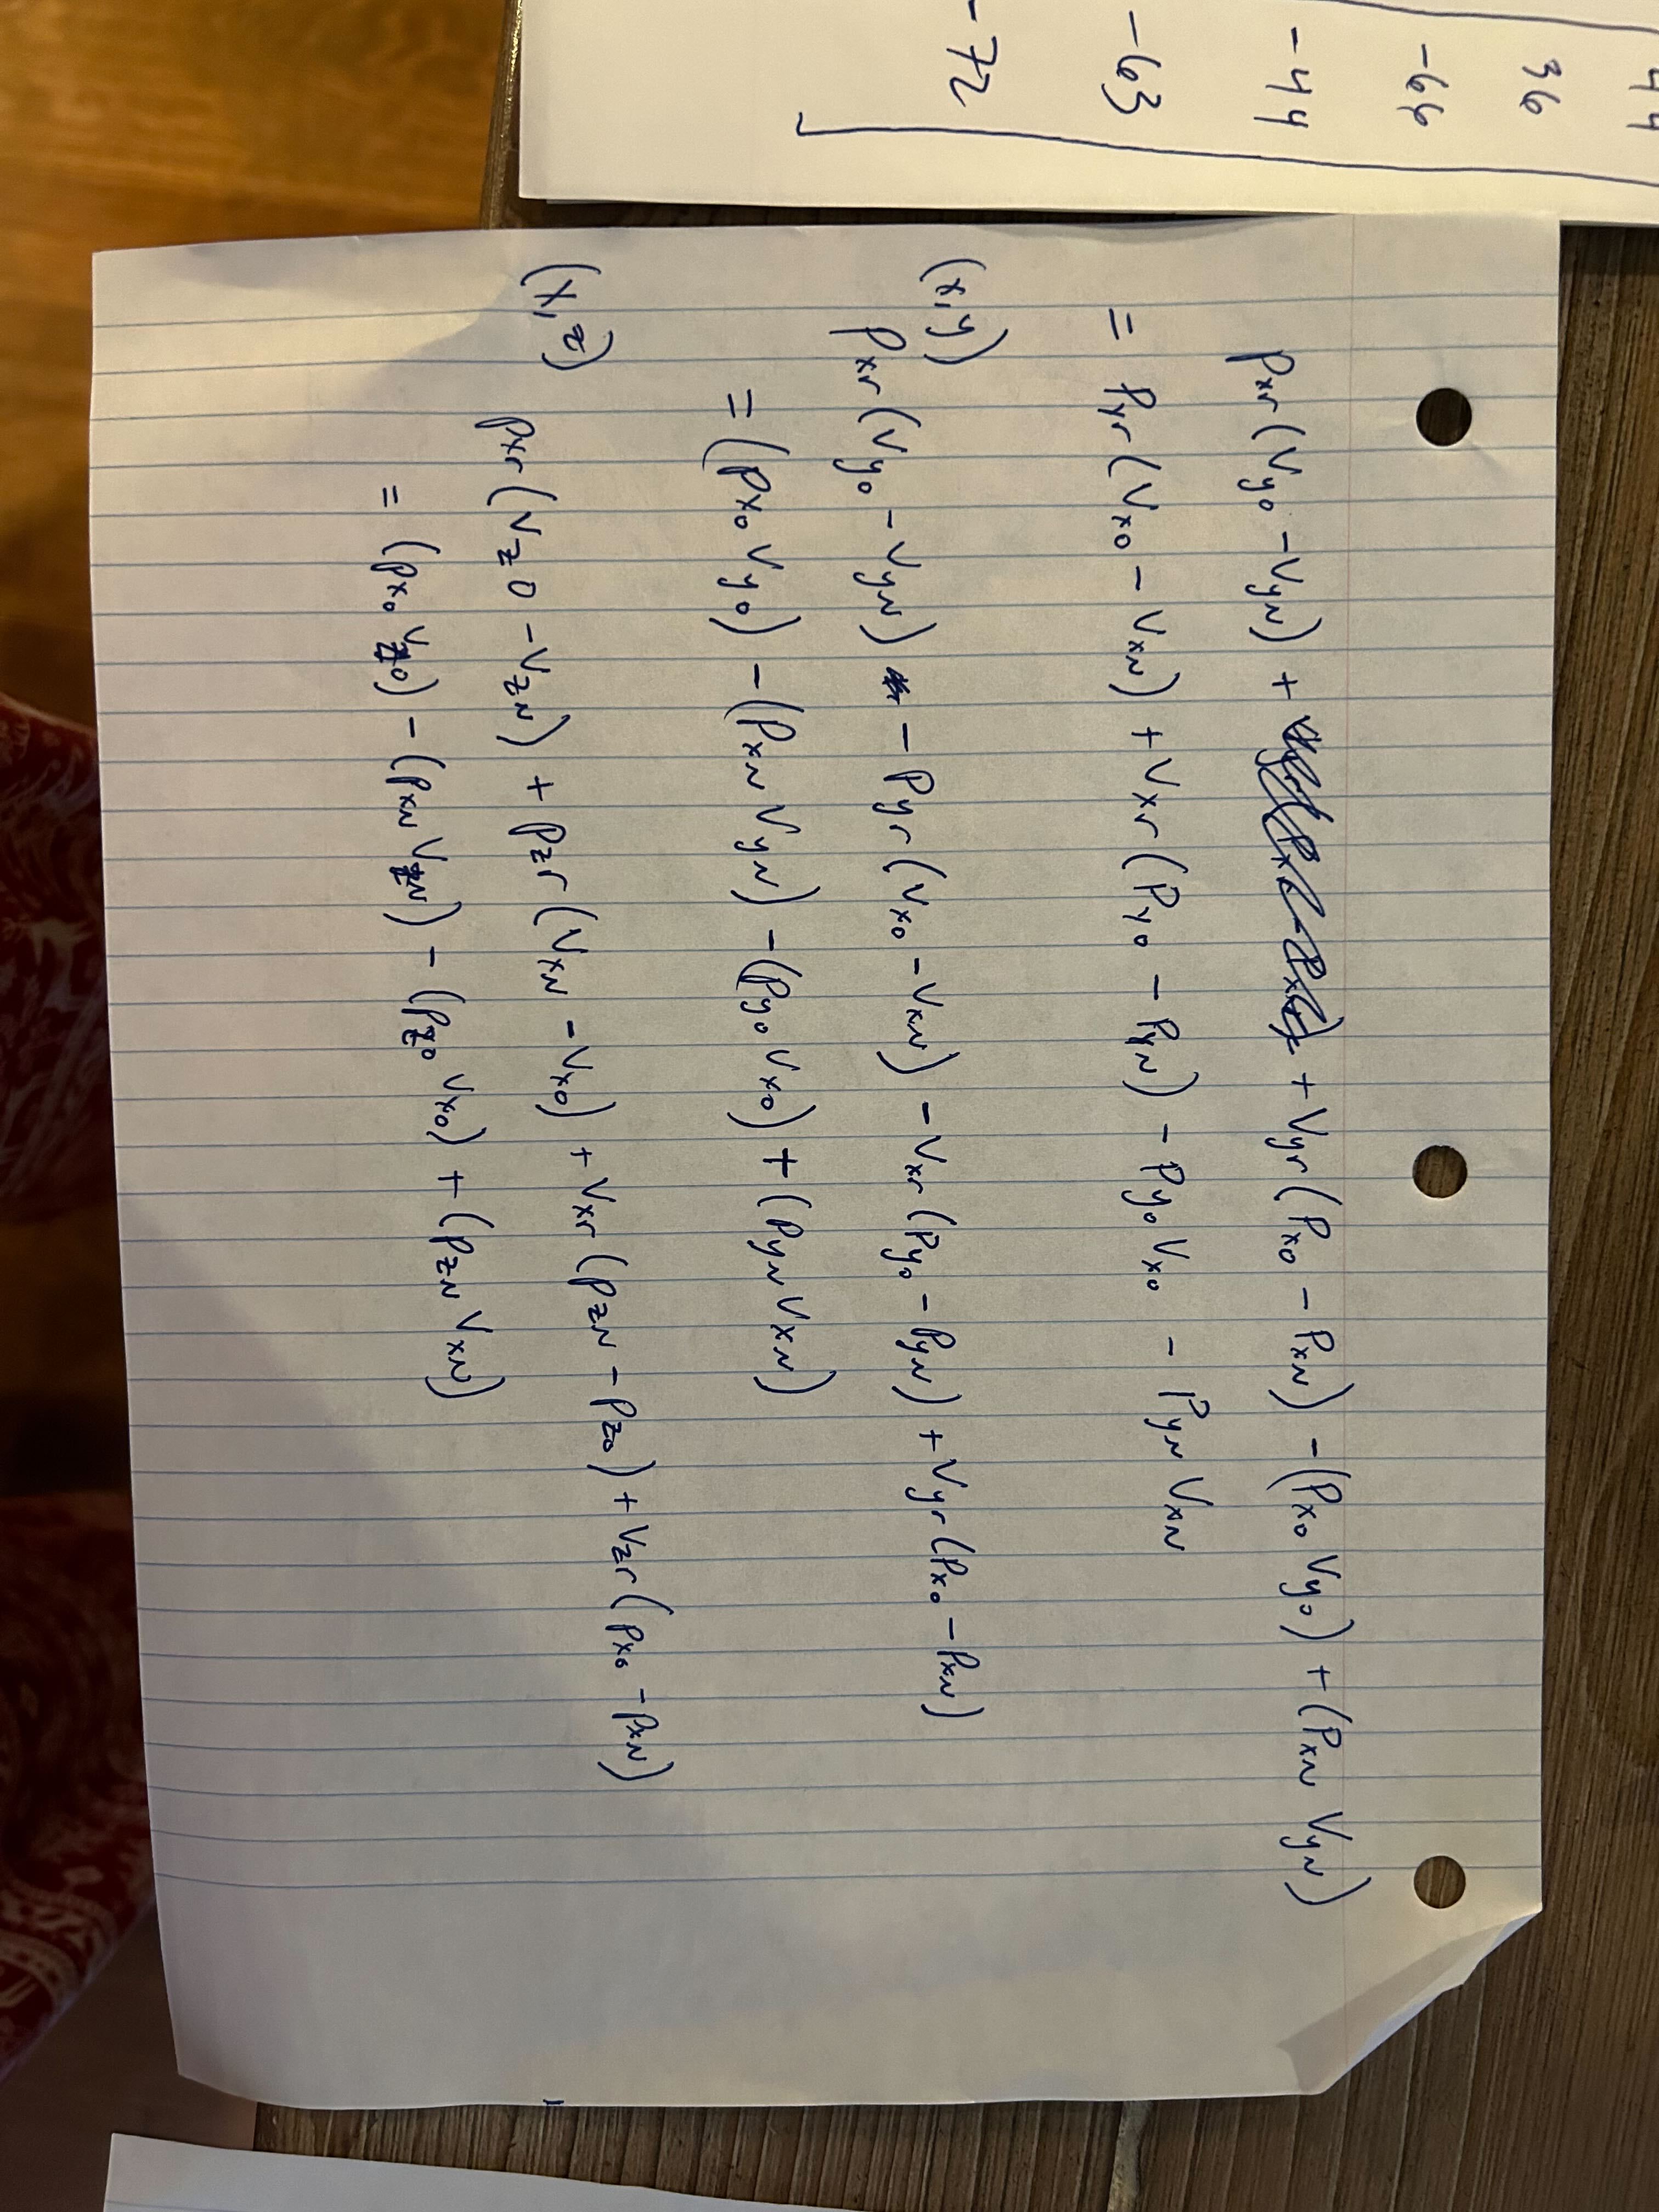 44
36
-66
-44
-63
-72 ]
Pxr (Vyo - VyN) + + Vyr (Pxo - PxN) - (Pxo Vyo) + (PxN VyN)
= Pyr (Vxo - VxN) + Vxr (Pyo - PyN) - Pyo Vxo - PyN VxN
(x,y)
Pxr (Vyo - VyN) - Pyr (Vxo - VxN) - Vxr (Pyo - PyN) + Vyr (Pxo - PxN)
= (Pxo Vyo) - (PxN VyN) - (Pyo Vxo) + (PyN VxN)
(x,z)
Pxr (Vzo - VzN) + Pzr (VxN - Vxo) + Vxr (PzN - Pzo) + Vzr (Pxo - PxN)
= (Pxo Vzo) - (PxN VzN) - (Pzo Vxo) + (PzN VxN)